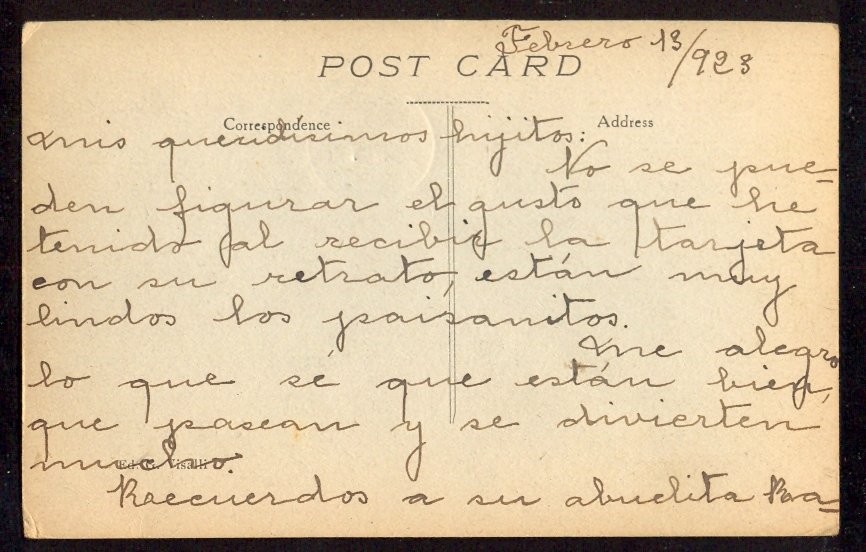 Febrero 13/923
POST CARD
Correspondence
Address
Mis queridísimos hijitos:
No se pue-
den figurar el gusto que he
tenido al recibir la tarjeta
con su retrato, están muy
lindos los paisanitos.
Me alegro
lo que sé que están bien,
que pasean y se divierten
mucho.
Visalli
Recuerdos a su abuelita Ra-